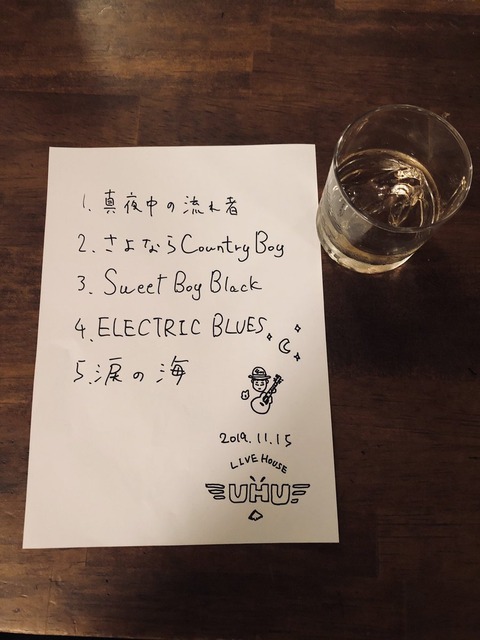 1. 真夜中の流れ者
2. さよならCountry Boy
3. Sweet Boy Black
4. ELECTRIC BLUES
5. 涙の海
2019.11.15
LIVE HOUSE
UHU